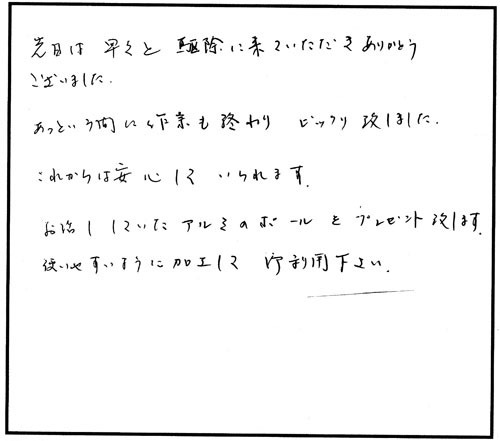 先日は 早々と 駆除に来ていただきありがとう
ございました.
あっという間に作業も終わり ビックリ致しました.
これからは安心して いられます.
お話ししていたアルミのポールをプレゼント致します.
使いやすいように加工して 御利用下さい.